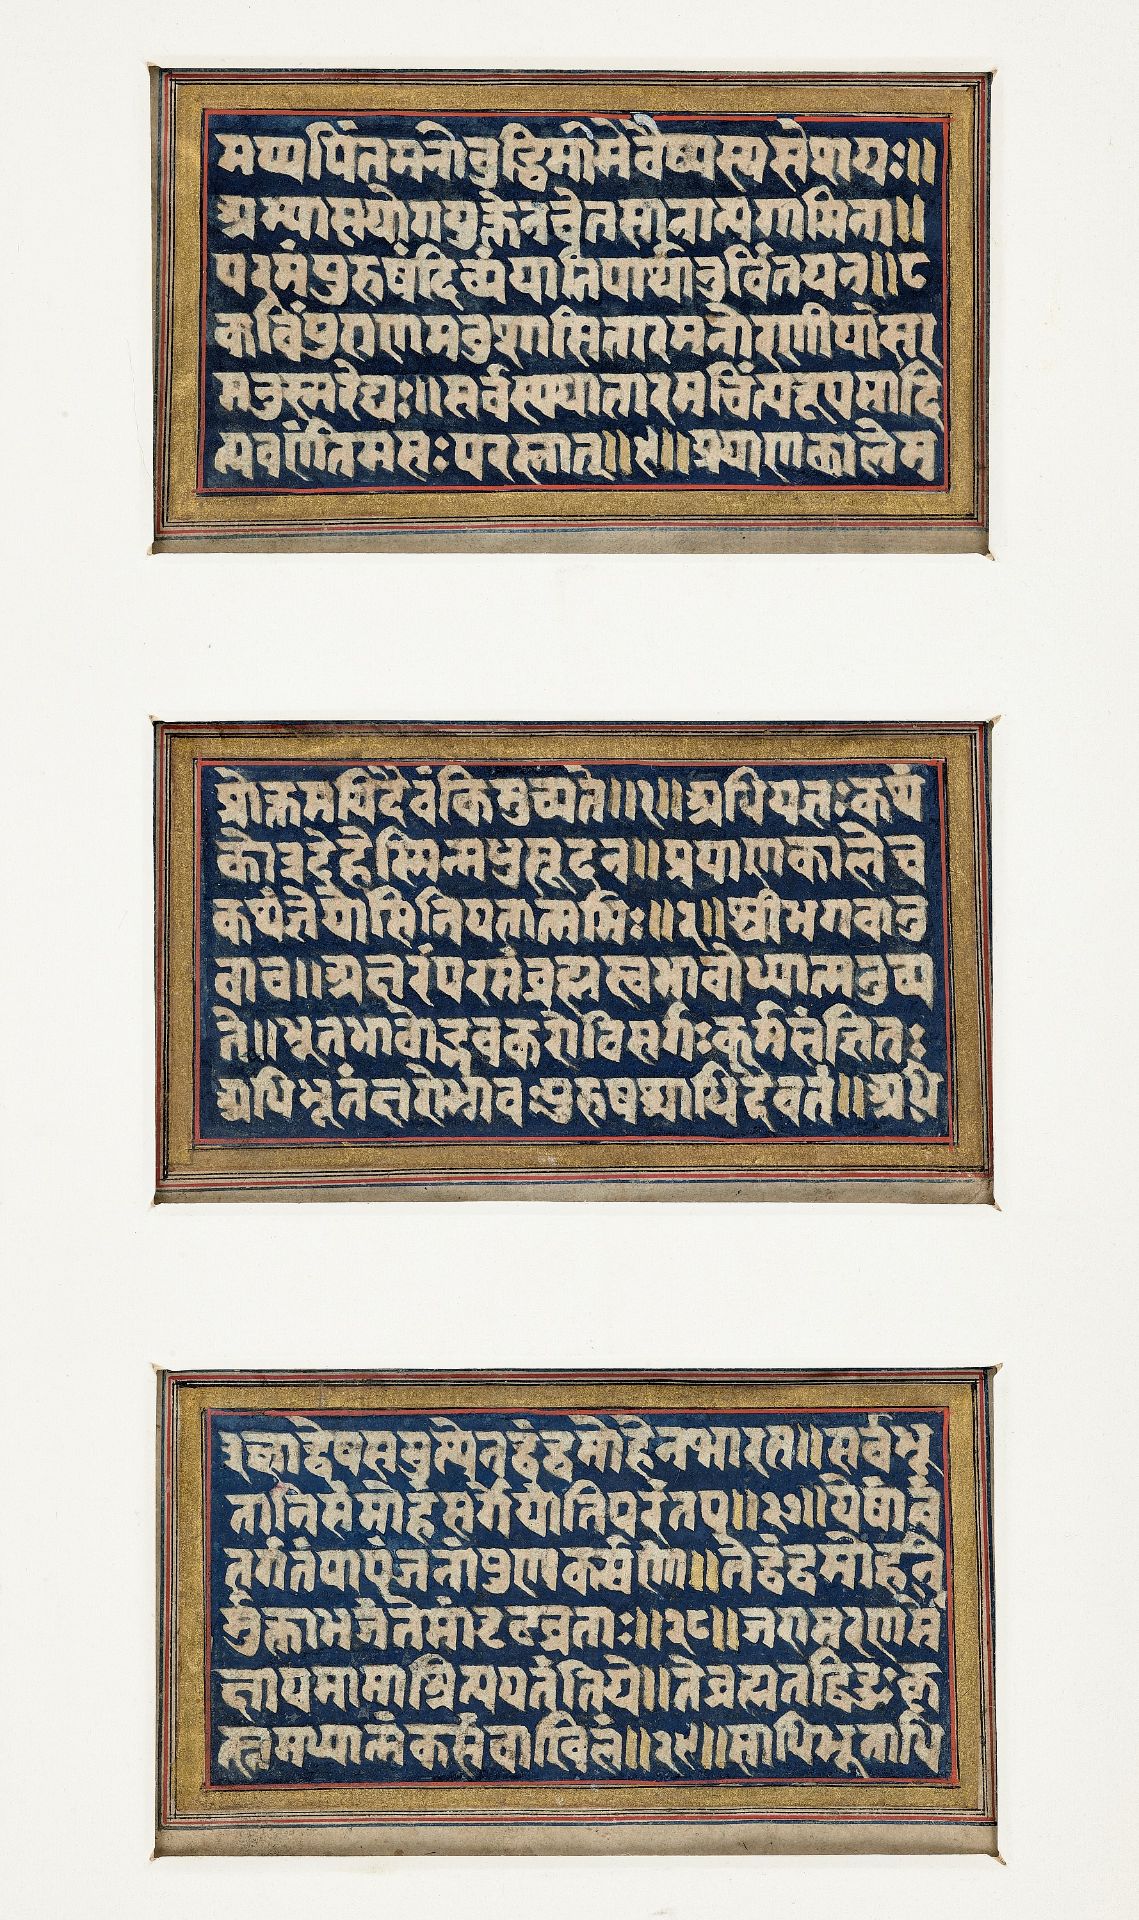 मय्यर्पितमनोबुद्धिर्मामेवैष्यस्यसंशयः॥
अभ्यासयोगयुक्तेनचेतसानान्यगामिना॥
परमंपुरुषंदिव्यंयातिपार्थानुचिंतयन्॥८
कविंपुराणमनुशासितारमनोरणीयांसा
मनुस्मरेद्यः॥सर्वस्यधातारमचिंत्यरूपमादि
त्यवर्णंतमसः परस्तात्॥९॥प्रयाणकालेम
प्रोक्तमधिदैवंकिमुच्यते॥१॥अधियज्ञःकथं
कोत्रदेहेस्मिन्मधुसूदन॥प्रयाणकालेच
कथंज्ञेयोसिनियतात्मभिः॥२॥श्रीभगवानु
वाच॥अक्षरंपरमंब्रह्मस्वभावोध्यात्ममुच्य
ते॥भूतभावोद्भवकरोविसर्गःकर्मसंज्ञितः
अधिभूतंक्षरोभावःपुरुषश्चाधिदैवतं॥अधि
इच्छाद्वेषसमुत्थेनद्वंद्वमोहेनभारत॥सर्वभू
तानिसंमोहंसर्गेयांतिपरंतप॥२७॥येषांत्वं
तगतंपापंजनानांपुण्यकर्मणां॥तेद्वंद्वमोहनि
र्मुक्ताभजंतेमांदृढव्रताः॥२८॥जरामरणमो
क्षायमामाश्रित्ययतंतिये॥तेब्रह्मतद्विदुःकृ
त्स्नमध्यात्मंकर्मचाखिलं॥२९॥साधिभूताधि